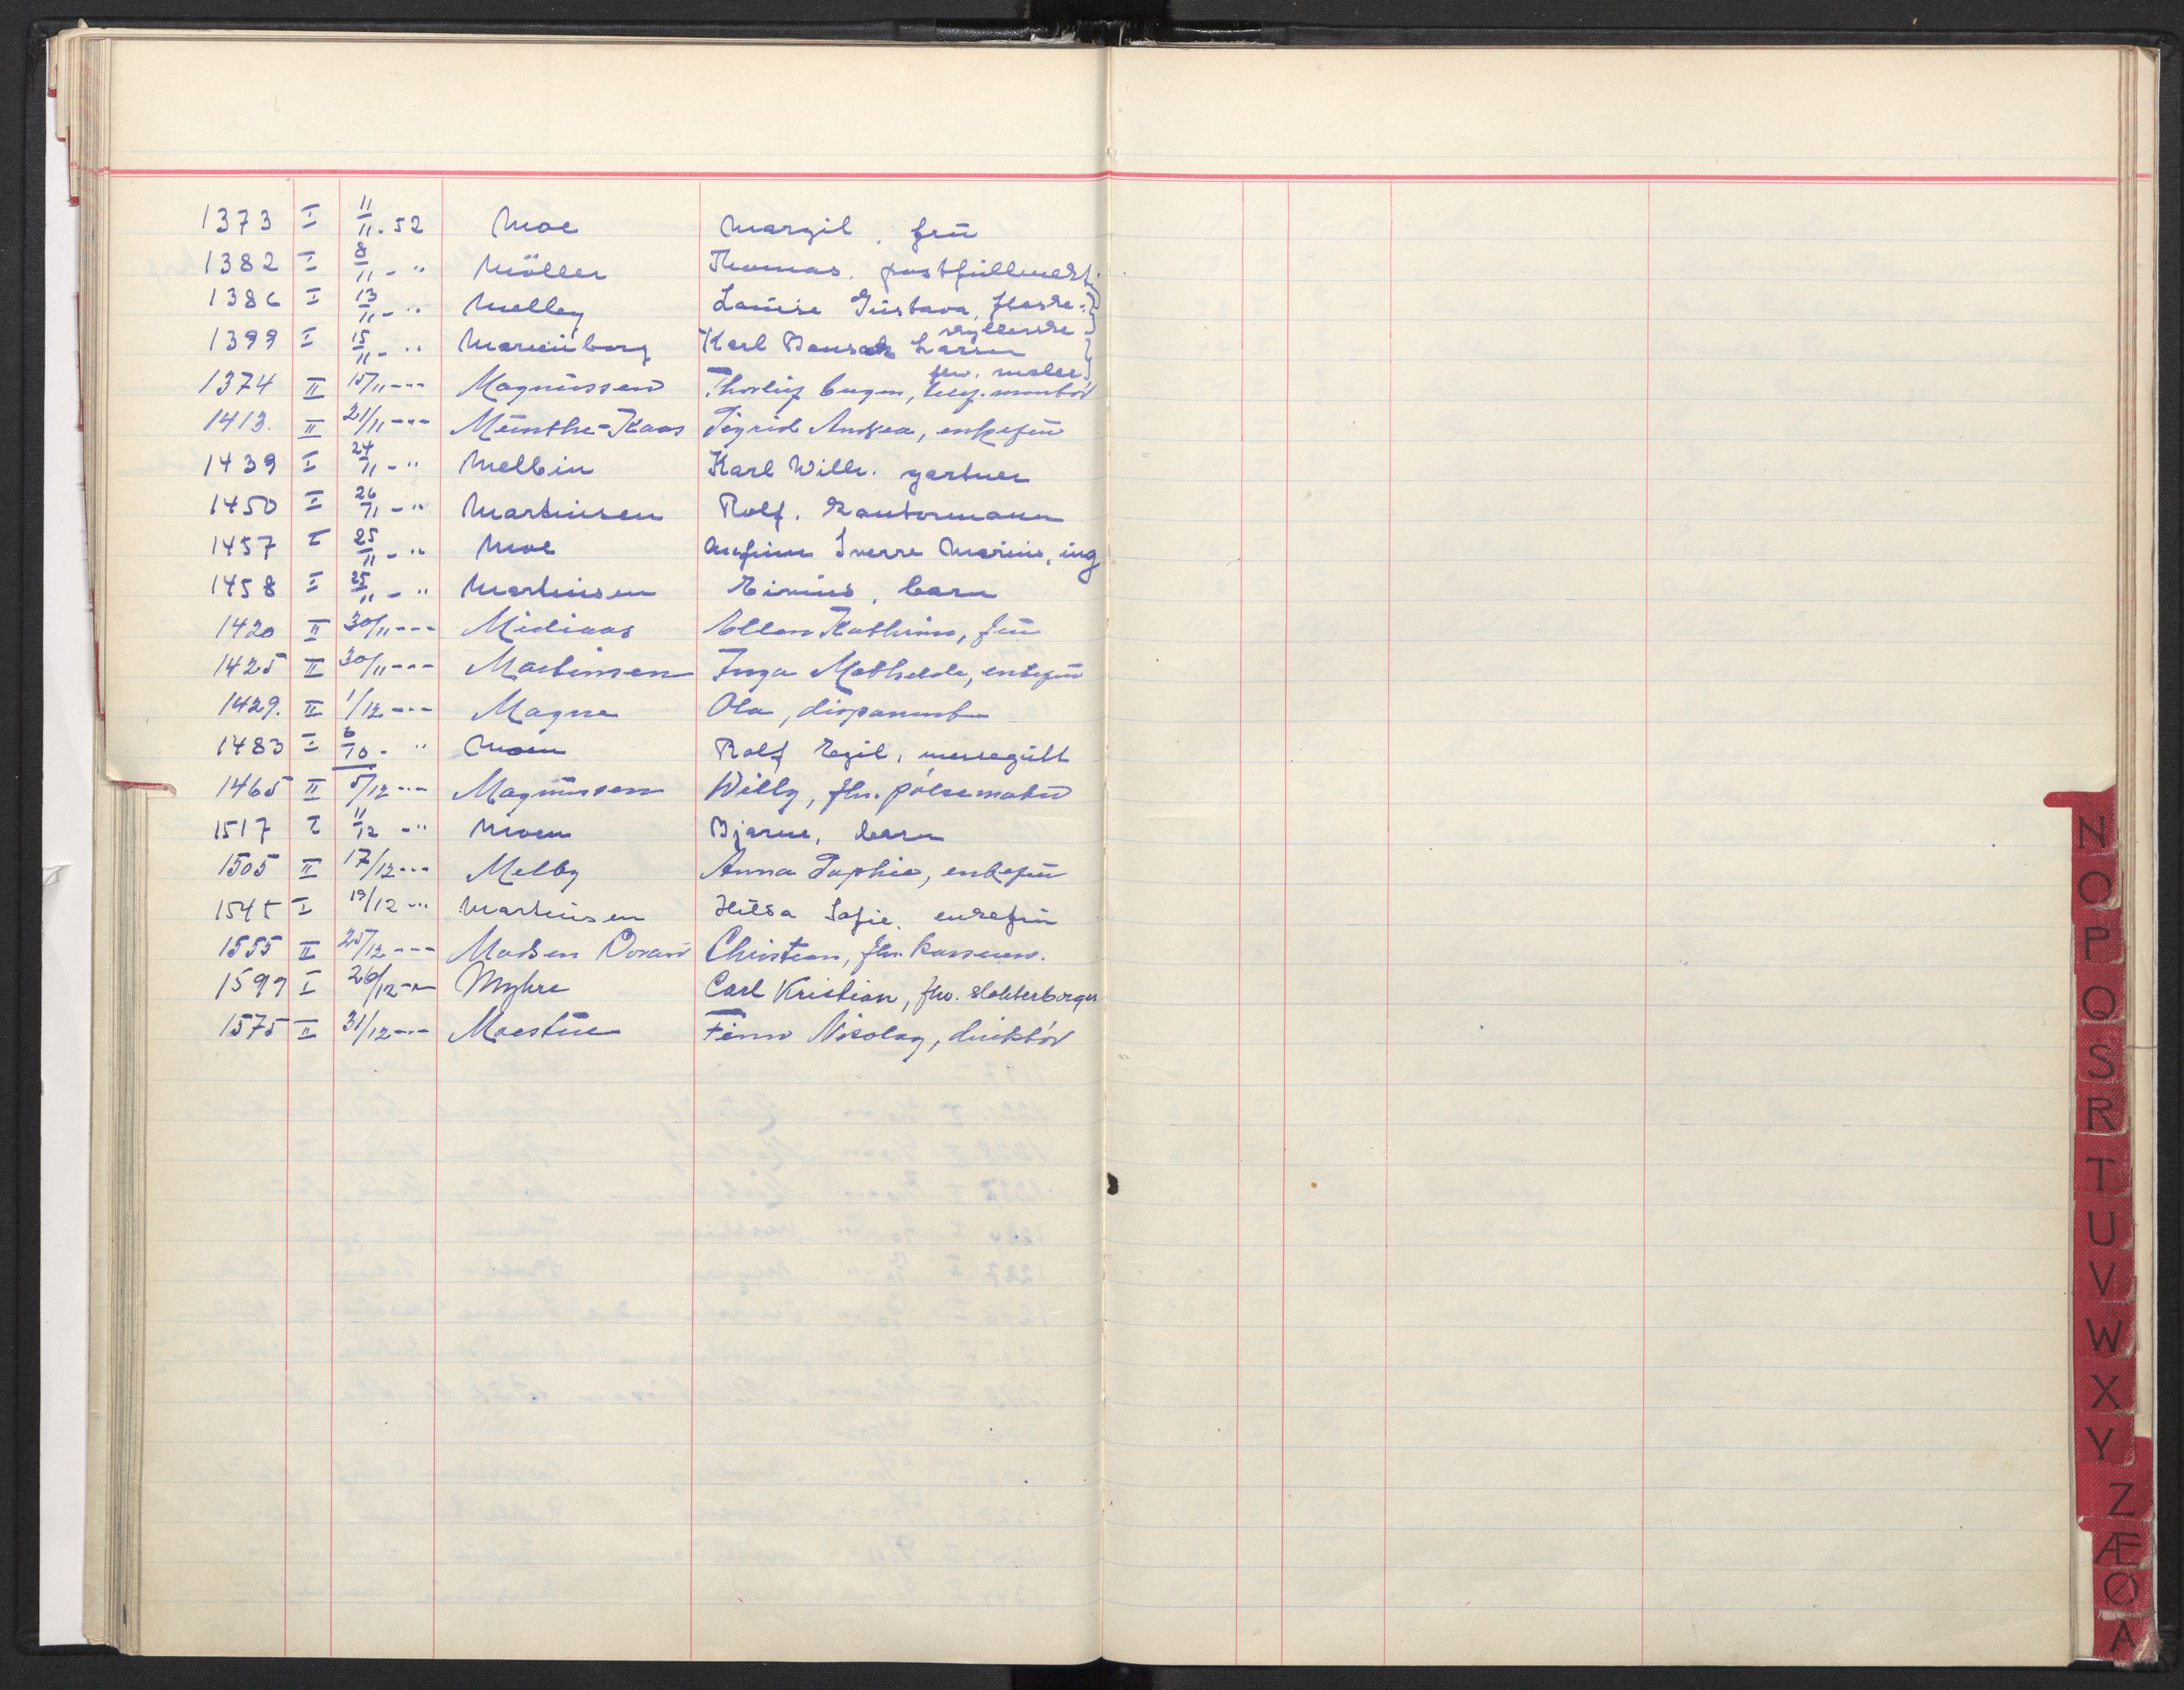 1373 I 11/11. 52 Moe Margit, frü
1382 I 8/11 - " Möller Thomas, postfüllmekt.
1386 I 13/11 - " Melley Louise Güstava, flaske-
skyllerske
1399 I 15/11 - " Marienborg Karl Larsen
fhv. maler
1374 II 15/11 - " - Magnüssen Thorleif Eugen, telef. montör
1413. II 21/11 - " - Münthe-Kaas Sigrid Andrea, enkefrü
1439 I 24/11 - " Mellbin Karl Wilh. gartner
1450 I 26/11 - " Martinsen Rolf, kontormann
1457 I 25/11 - " Moe Arnfinn Sverre Marius, ing
1458 I 25/11 - " Martinsen barn
1420 II 30/11 - " - Midiaas Ellen Kathrine, frü
1425 II 30/11 - " - Martinsen Inga Mathilde, enkefrü
1429. II 1/12 - " - Magne Ola, disponent
1483 I 6/10 - " Moen Rolf Egil, messegütt
1465 II 5/12 - " - Magnüssen Willy, fhv. pölsemaker
1517 I 11/12 - " Moen Bjarne, barn
1505 II 17/12 - " - Melby Anna Sophie, enkefrü
1545 I 19/12 - " Martinsen Hilda Sofie, enkefrü
1555 II 25/12 - " - Madsen Christian, fhv.
1599 I 26/12 - " - Myhre Carl Kristian, fhv. slakterborger
1575 II 31/12 - " - Moestüe Finn Nicolay, direktör
N
O
P
Q
S
R
T
U
V
W
X
Y
Z
Æ
Ø
A